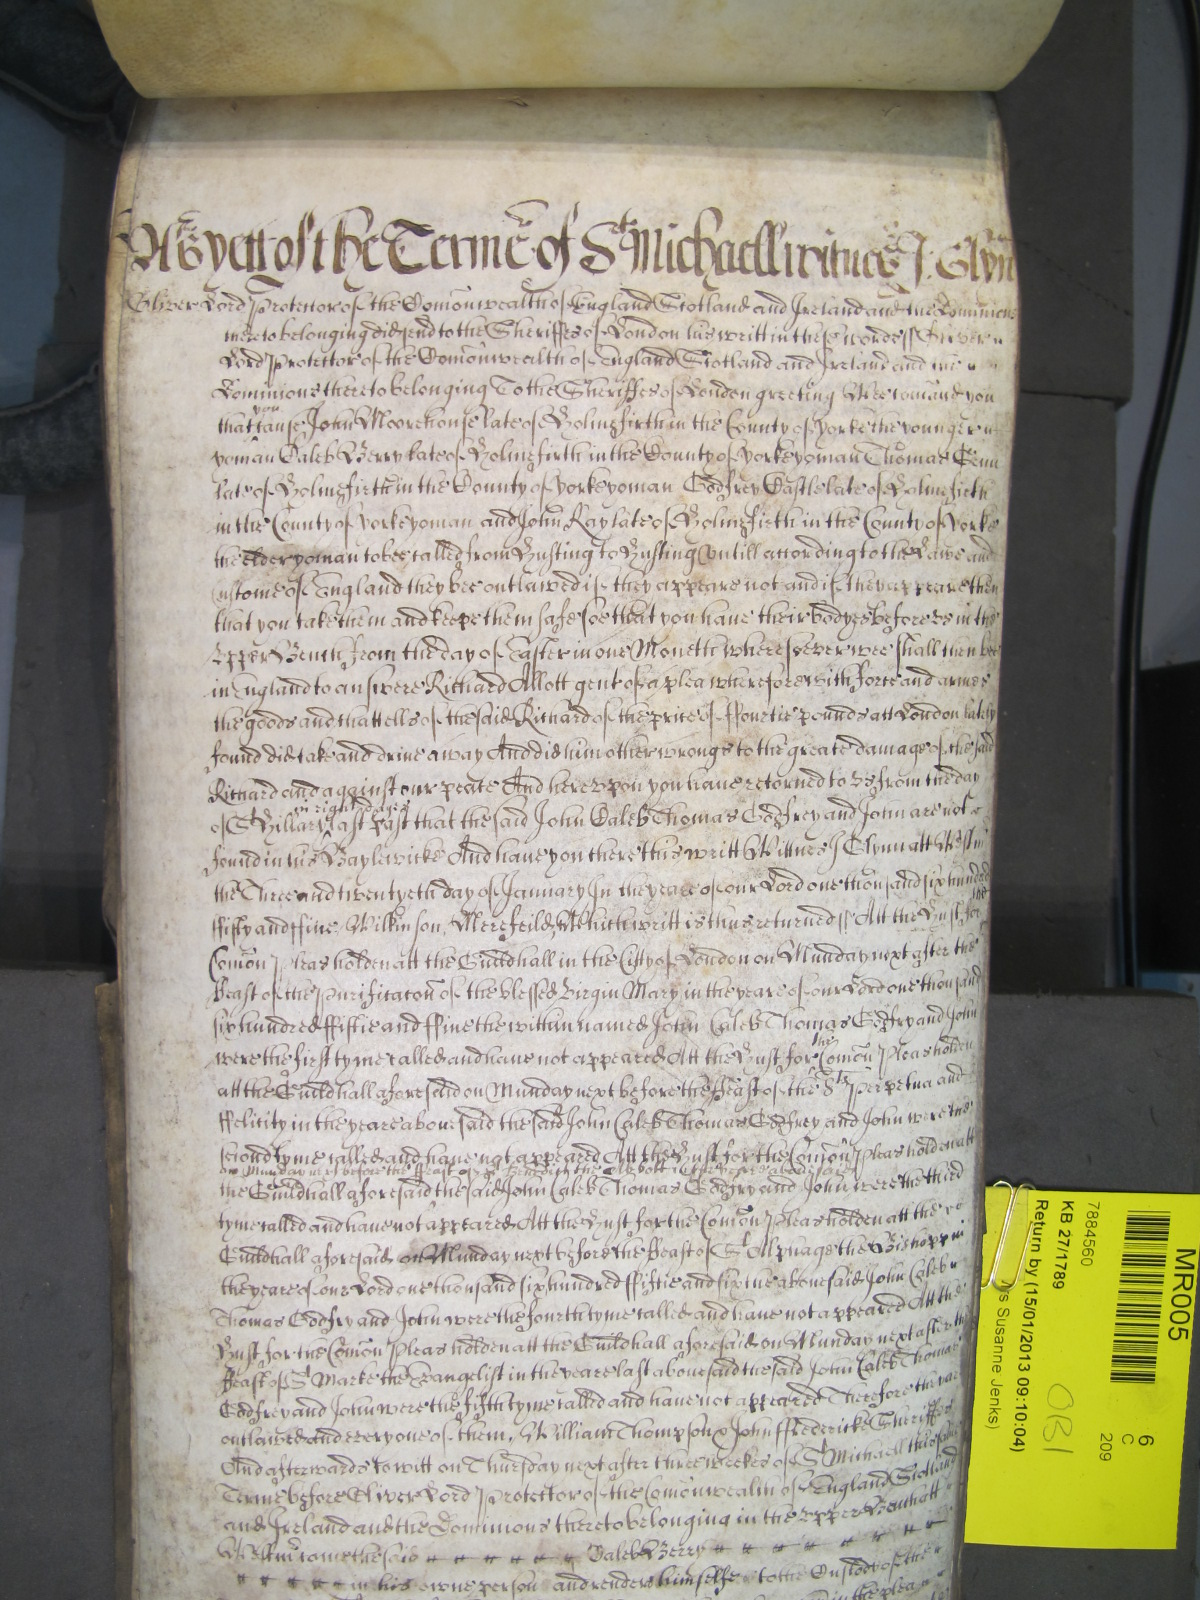 As yett of the Terme of St Michaell wittnes J: Glyn
Oliver Lord Protector of the Comonwealth of England Scotland and Ireland and the Dominions
thereto belonging did send to the Sheriffes of London his writt in these words // Oliver
Lord Protector of the Comonwealth of England Scotland and Ireland and the
Dominions thereto belonging To the Sheriffes of London greeting Wee comand you
that you cause John Moorehouse late of Holmfirth in the County of Yorke the younger
yoman Caleb Berry late of Holmfirth in the County of Yorke yoman Thomas
late of Holmfirth in the County of Yorke yoman Godfrey Castle late of Holmfirth
in the County of Yorke yoman and John Kay late of Holmfirth in the County of Yorke
the elder yoman to bee called from Husting to Husting Untill according to the Lawe and
custome of England they bee outlawed if they appeare not and if they appeare then
that you take them and keepe them safe soe that you have their bodyes before us in the
Upper Bench from the day of Easter in one Moneth wheresoever wee shall then bee
in England to answere Richard Allott gent of a plea wherefore with force and armes
the goods and chattells of the said Richard of the price of ffortie pounds att London lately
found did take and drive away And did him other wrongs to the great damage of the said
Richard and against our peace And hereupon you have returned to us from the day
of St Hillary in eight dayes last past that the said John Caleb Thomas Godfrey and John are not
found in his Baylewicke And have you there this writt Wittnes J Glynn att Westm
the Three and twentyeth day of January In the yeare of our Lord one thousand six hundred
ffifty and ffive / Wilkinson, Merefeild, Which writt is thus returned // Att the Hust for the
Comon Pleas holden att the Guildhall in the Citty of London on Munday next after the
Feast of the Purificaton of the blessed Virgin Mary in the yeare of our Lord one thousand
six hundred ffiftie and ffive the within named John Caleb Thomas Godfry and John
were the first tyme called and have not appeared Att the Hust for the Comon Pleas holden
att the Guildhall aforesaid on Munday next before the Feast of the Sts Perpetua and
ffelicity in the yeare abovesaid the said John Caleb Thomas Godfrey and John were the
second tyme called and have not appeared Att the Hust for the Comon Pleas holden att
on Munday next before the Feast of St Benedict the Abbott in the yeare abovesaid
the Guildhall aforesaid the said John Caleb Thomas Godfry and John were the third
tyme called and have not appeared Att the Hust for the Comon Pleas holden att the
Guildhall aforesaid on Munday next before the Feast of St Alphage the Bishopp in
the yeare of our Lord one thousand six hundred ffiftie and six the abovesaid John Caleb
Thomas Godfry and John were the fourth tyme called and have not appeared Att the
Hust for the Comon Pleas holden att the Guildhall aforesaid on Munday next after the
Feast of St Marke the Evangelist in the yeare last abovesaid the said John Caleb Thomas
Godfrey and John were the fifth tyme called and have not appeared Therefore they are
outlawed and every one of them, William Thompson John ffrederick Sheriffes
And afterwards to witt on Thursday next after three weekes of St Michaell this same
Terme before Oliver Lord Protector of the Comonwealth of England Scotland
and Ireland and the Dominions thereto belonging in the Upper Bench att
Westm came the said Caleb Berry
in his owne person and renders himselfe to the Custody of the
in the plea
MR005
7884560
KB 27/1789
Return by (15/01/2013 09:10:04)
Susanne Jenks)
6
C
209